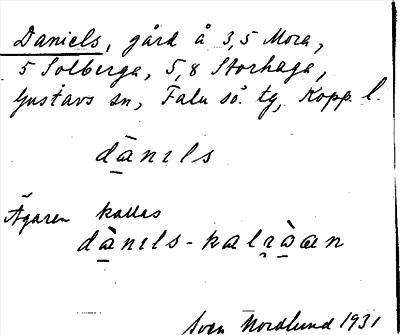 Daniels, gård å 3,5 Mora,
5 Solberga, 5,8 Storhaga,
Gustavs sn, Falu sö. tg, Kopp. l.
dà̱nɪls
Ägaren kallas
dà̱nɪls-kalr̥à̱an
Sven Nordlund 1931